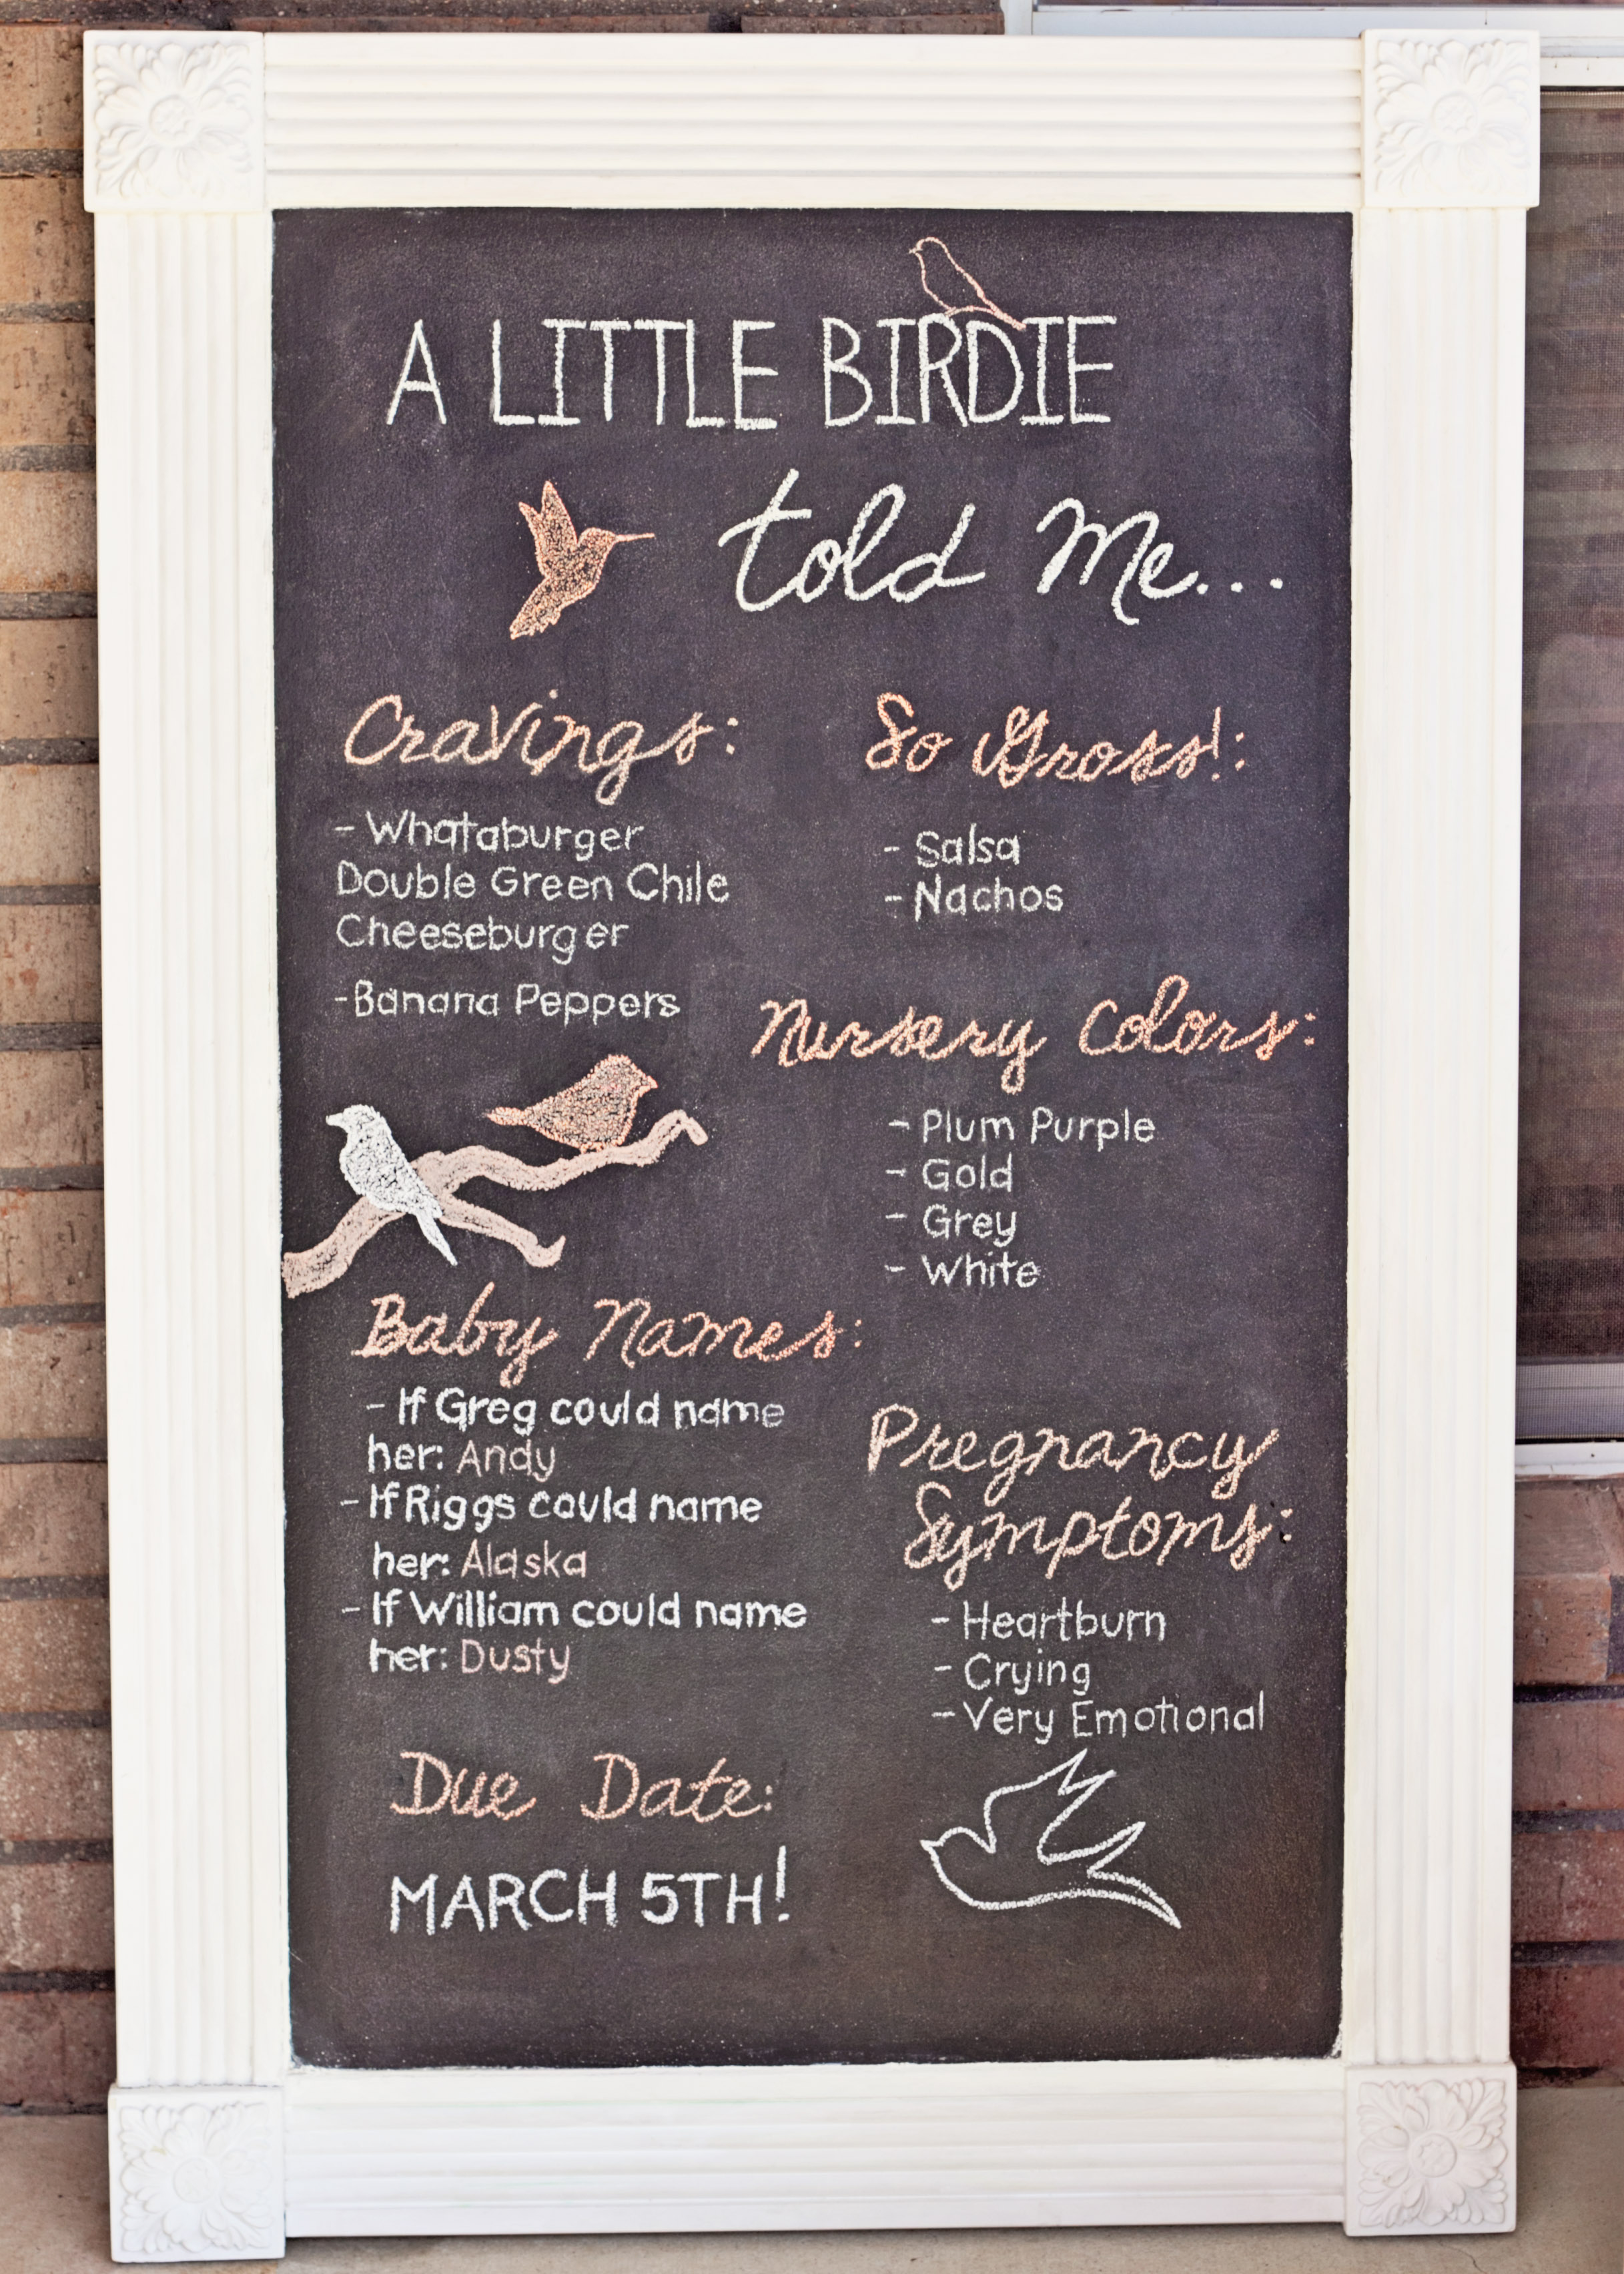 A LITTLE BIRDIE
told Me...
Cravings:
- Whataburger
Double Green Chile
Cheeseburger
-Banana Peppers
So Gross!:
- Salsa
- Nachos
Nursery Colors:
- Plum Purple
- Gold
- Grey
- White
Baby Names:
- If Greg could name
her: Andy
- If Riggs could name
her: Alaska
- If William could name
her: Dusty
Pregnancy
Symptoms:
- Heartburn
- Crying
- Very Emotional
Due Date:
MARCH 5TH!